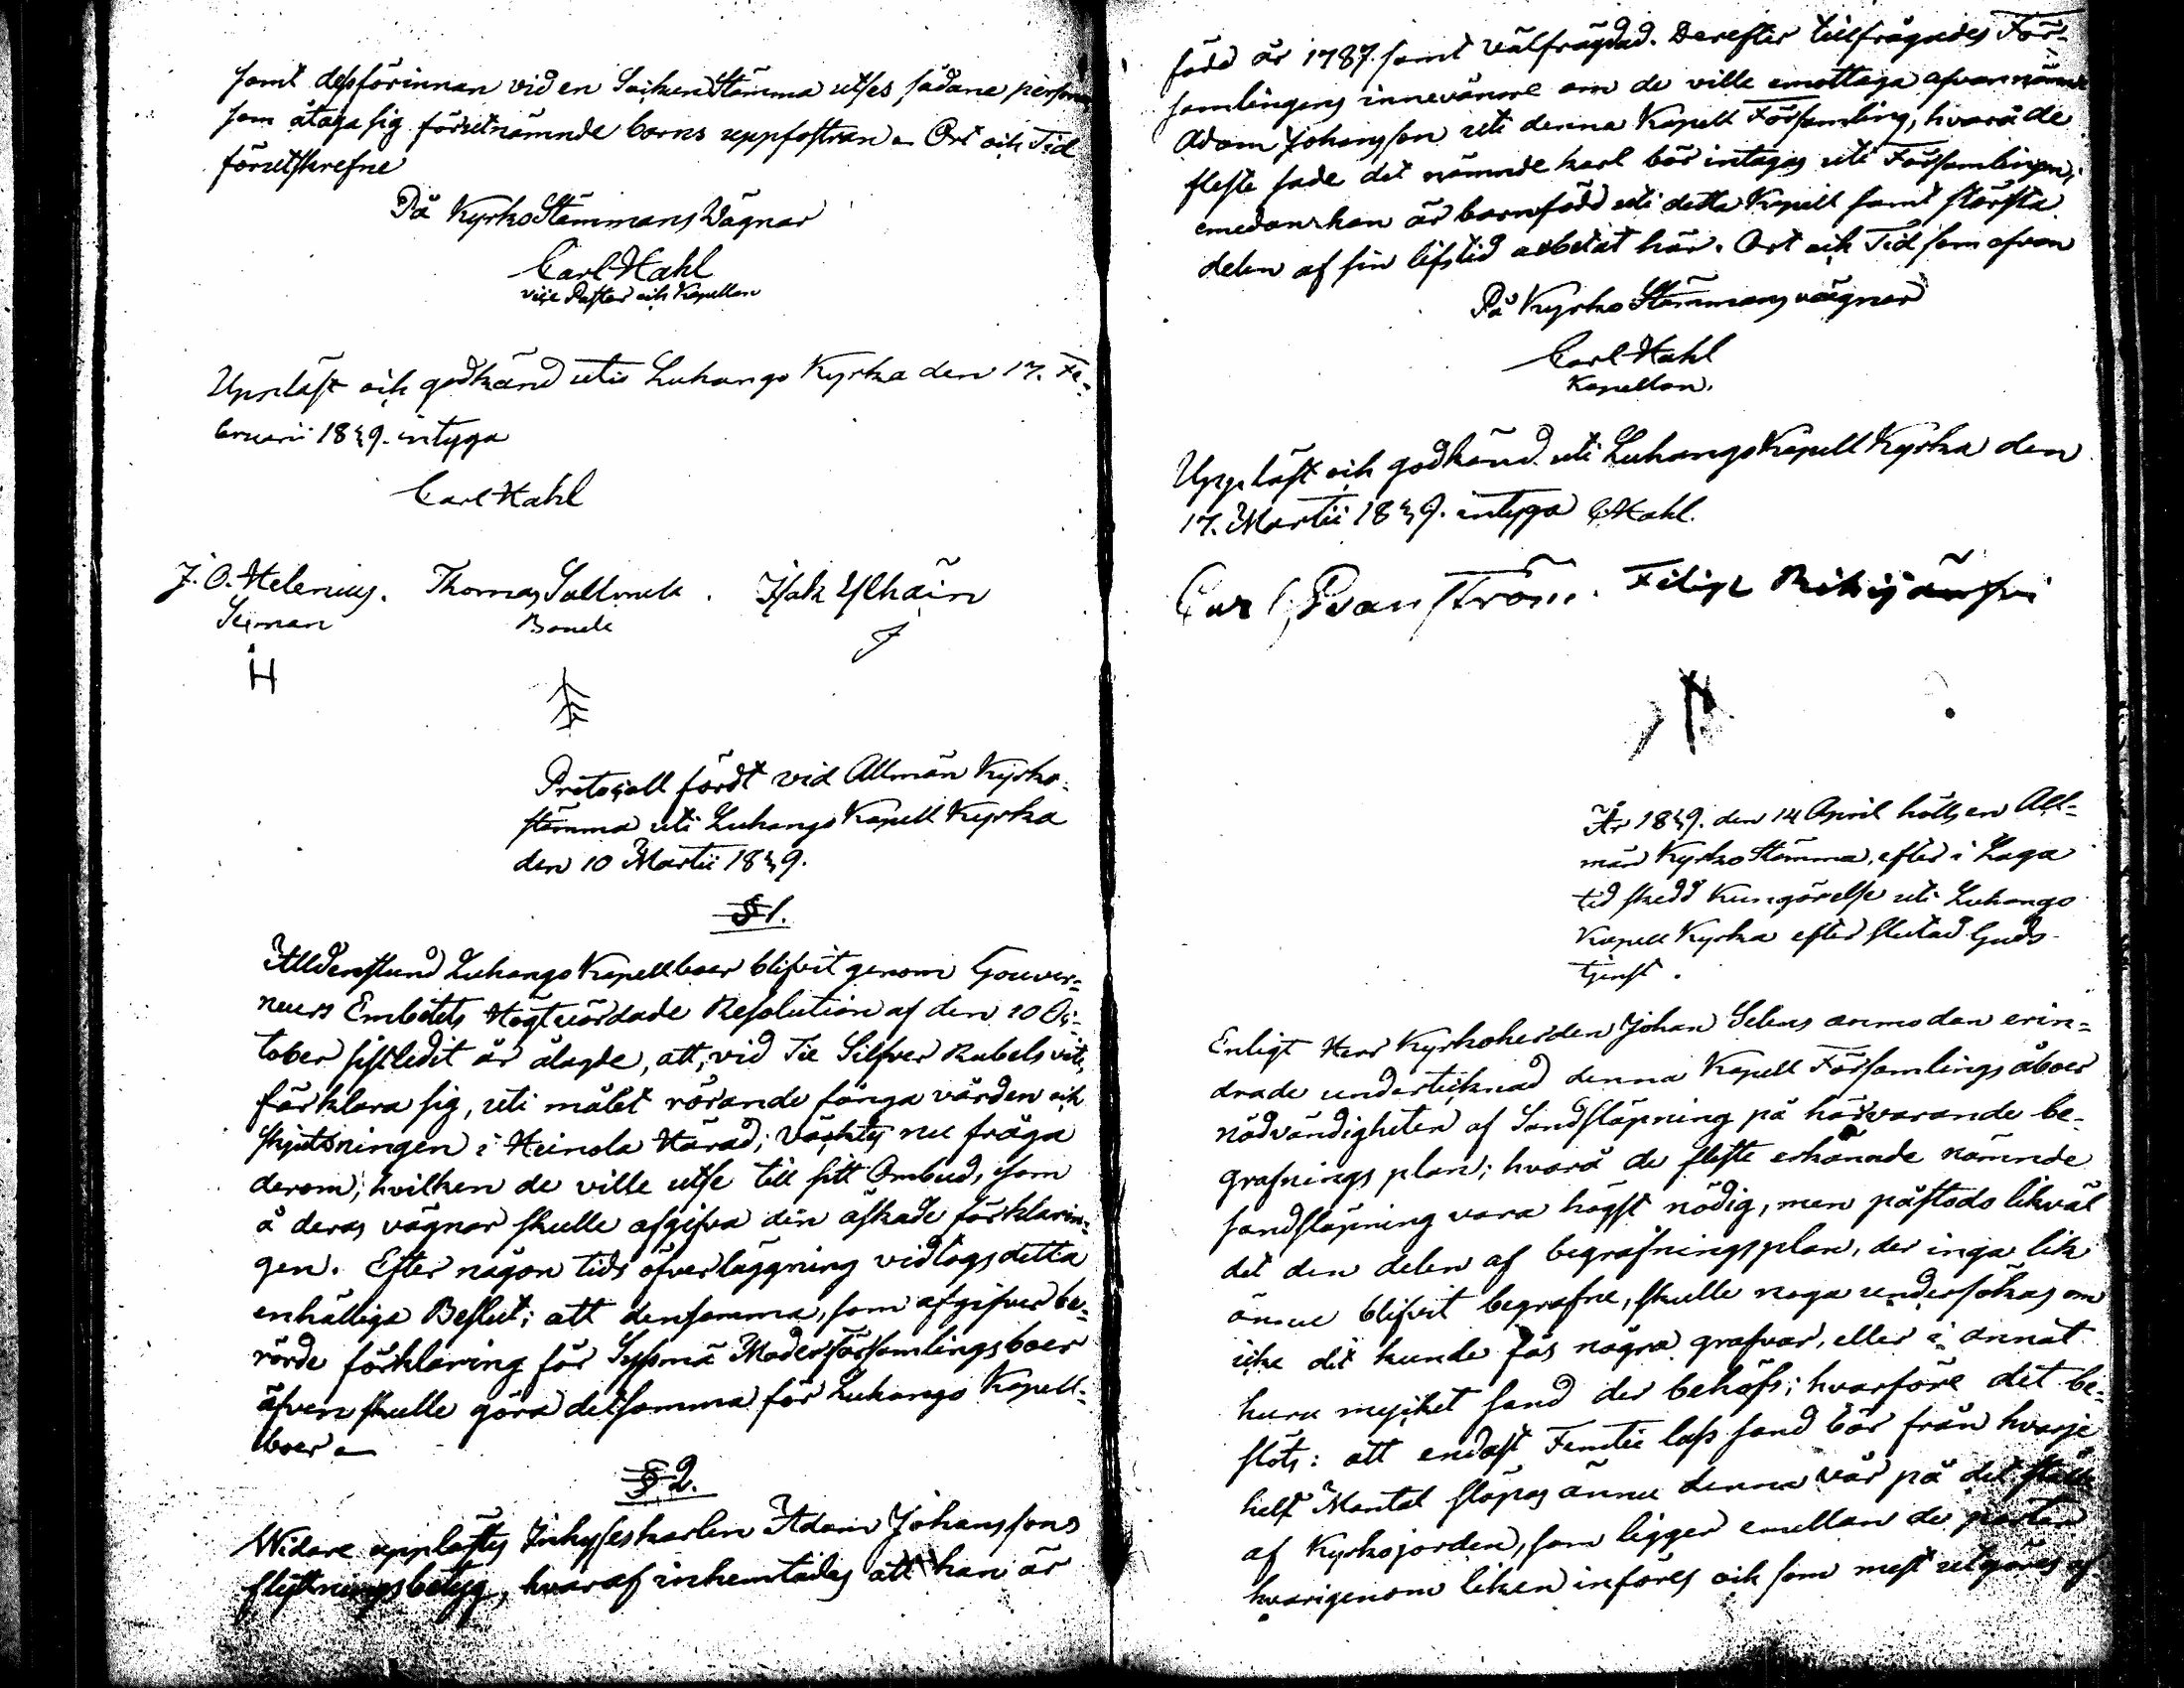 samt dessförinnan vid en Sockenstämma utses sådane person
som åtaga sig förutnämnde barns uppfostran. Ort och Tid
förutskrefne
På KyrkoStämmans Wägnar
Carl Hahl
vice Pastor och Kapellan
Uppläst och godkänd uti Luhango Kyrka den 17. Fe-
bruarii 1849. intyga
Carl Hahl
J. O. Helenius. Thomas Isak
Sexman Bonde
H
Protocoll fördt vid Allmän Kyrko-
stämma uti Luhango Kapell Kyrka
den 10 Martii 1849.
§ 1.
Alldenstund Luhango Kapellboer blifvit genom Gouver-
neurs Embetets Högtvördade Resolution af den 20 Oc-
tober sistledit år ålagde, att, vid Tie Silfver Rubels vite,
förklara sig, uti målet rörande fånga vården och
skjutsningen i Heinola Härad; väcktes nu fråga
derom, hvilken de ville utse till sitt Ombud, som
å deras vägnar skulle afgifva den äskade förklarin-
gen. Efter någon tids öfverläggning vidtogs detta
enhälliga Beslut; att densamma, som afgifver be-
rörde förklaring för Sysmä Moderförsamlingsboer
äfven skulle göra detsamma för Luhango Kapell-
boer
§ 2.
Widare upplästes Inhyseskarlen Adam Johanssons
flyttningsbetyg, hvaraf inhemtades att han är
född år 1787. samt välfrägdad. Derefter tillfrågades För-
samlingens innevånare om de ville emottaga ofvannämnde
Adam Johansson uti denna Kapell Församling, hvarå de
fleste sade det nämnde karl bör intagas uti Församlingen,
emedan han är barnfödd uti detta Kapell samt största
delen af sin lifstid arbetat här. Ort och Tid som ofvan
På Kyrko Stämmans vägnar
Carl Hahl
Kapellan.
Uppläst och godkänd uti Luhango Kapell Kyrka den
17. Martii 1849. intyga C Hahl.
Carl Filip
År 1849. den 14 April hölls en All-
män KyrkoStämma, efter i Laga
tid skedd Kungörelse uti Luhango
Kapell Kyrka efter slutad Guds-
tjenst.
Enligt Herr Kyrkoherden Johan Selens anmodan erin-
drade undertecknad denna Kapell Församlings åboer
nödvändigheten af Sandsläpning på härvarande be-
grafnings plan; hvarå de fleste erkännde nämnde
sandsläpning vara högst nödig, men påstodo likväl
det den delen af begrafningsplan, der inga lik
ännu blifvit begrafne, skulle noga undersökas om
icke dit kunde fås några grafvar, eller i annat
huru mycket sand der behöfs; hvarföre det be-
slöts: att endast Femtie lass sand bör från hvarje
helt Mantal släpas ännu denna vår på det ställe
af Kyrkojorden, som ligger emellan de portar
hvarigenom liken införes och som mest utgöres af